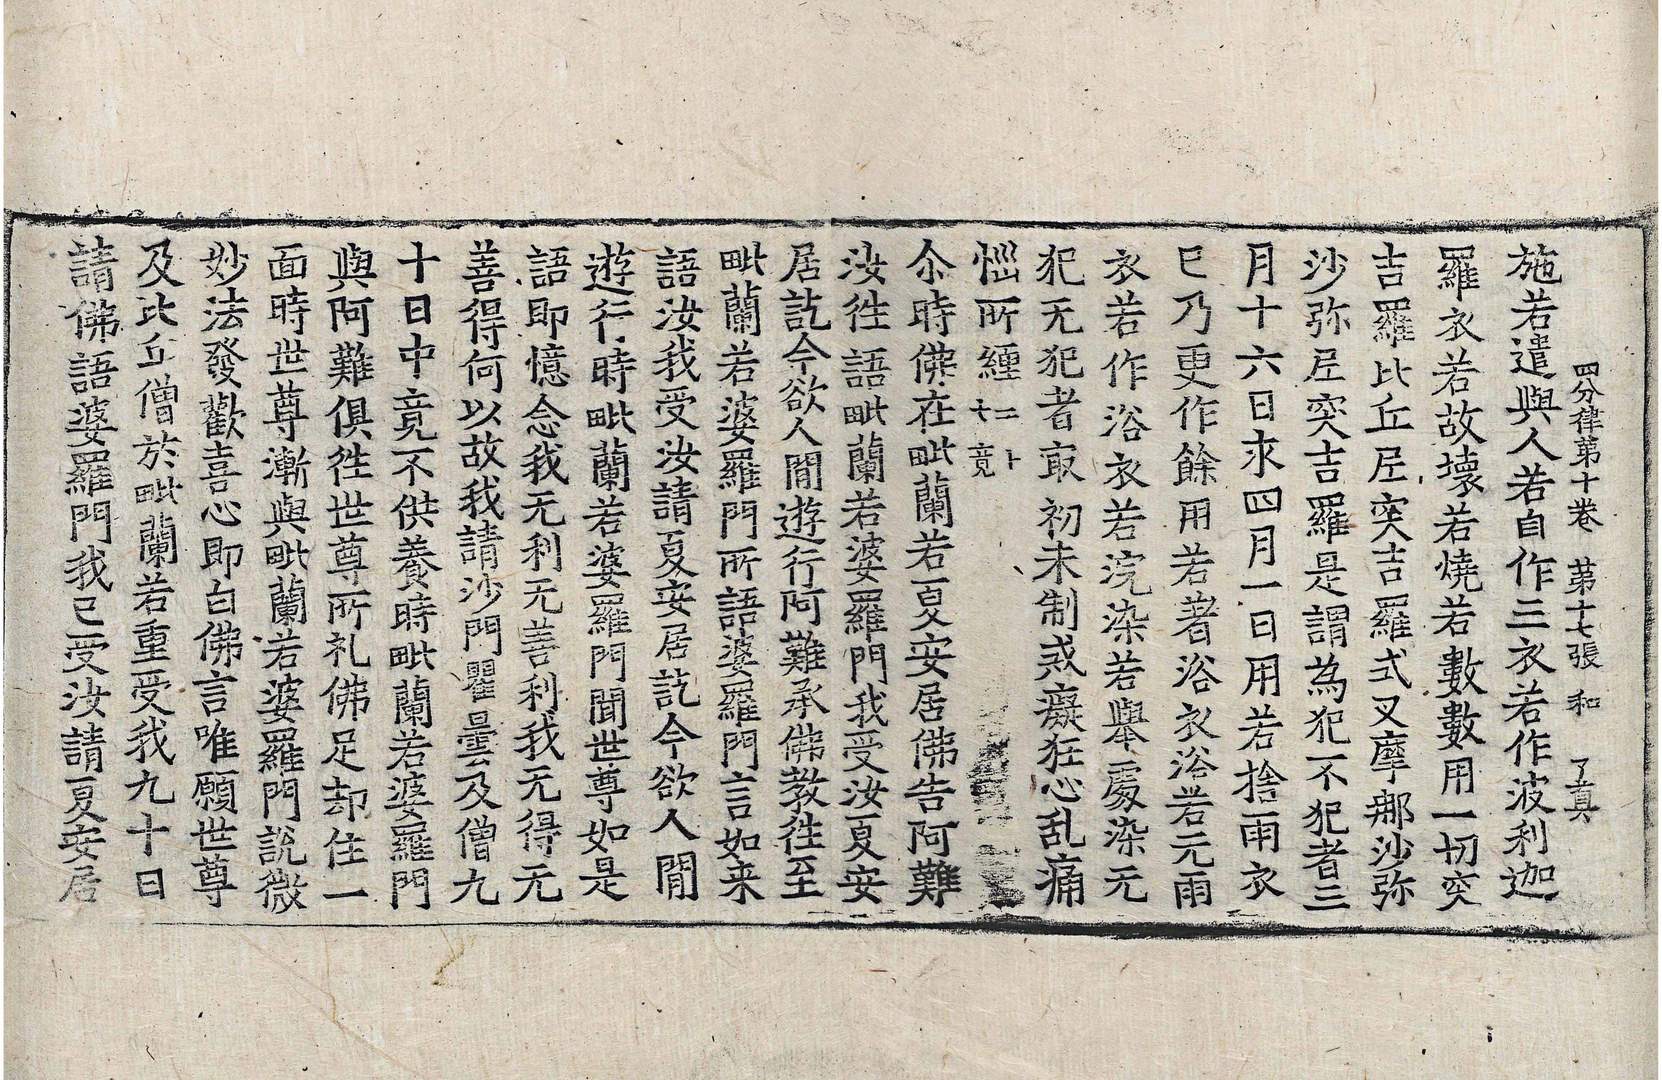 四分律第十卷 第十七張 和 了眞
施若遣與人若自作三衣若作波利迦
羅衣若故壞若燒若數數用一切突
吉羅比丘尼突吉羅式叉摩那沙弥
沙弥尼突吉羅是謂為犯不犯者三
月十六日求四月一日用若捨雨衣
已乃更作餘用若著浴衣浴若无雨
衣若作浴衣若浣染若舉處染无
犯无犯者冣初未制戒癡狂心乱痛
惱所纏二十七竟
尒時佛在毗蘭若夏安居佛告阿難
汝徃語毗蘭若婆羅門我受汝夏安
居訖今欲人閒遊行阿難承佛教徃至
毗蘭若婆羅門所語婆羅門言如来
語汝我受汝請夏安居訖今欲人閒
遊行時毗蘭若婆羅門聞世尊如是
語即憶念我无利无善利我无得无
善得何以故我請沙門瞿曇及僧九
十日中竟不供養時毗蘭若婆羅門
與阿難俱徃世尊所礼佛足却住一
面時世尊漸與毗蘭若婆羅門說微
妙法發歡喜心即白佛言唯願世尊
及比丘僧於毗蘭若重受我九十日
請佛語婆羅門我已受汝請夏安居